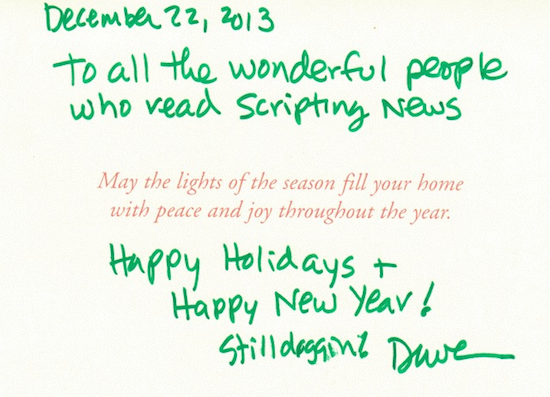 December 22, 2013
To all the wonderful people
who read Scripting News
May the lights of the season fill your home
with peace and joy throughout the year.
Happy Holidays +
Happy New Year!
Still diggin! Dave